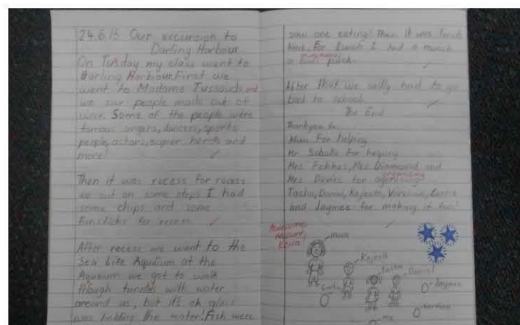 24.6.13 Our excursion to
Darling Harbour
On Tusday my class went to
Darling Harbour. First we
went to Madame Tussauds and
we sur people made out of
wax. Some of the people were
famous singers, dancers, sports
people, actors, super heros and
more!
Then it was recess for recess
we sat on some steps I had
some chips and some
for recess.
After recess we went to the
Sea Life Aquarium at the
Aquarium we got to walk
though tunnels with water
around us, but it's ok glass
was holding the water! Fish were
saw one eating! Then it was lunch
time. For lunch I had a munch
a
After that we sadly had to go
back to school.
The End
Thankyou to:
Mum For helping
Mr for helping
Mrs Fekkes, Mrs Diamond and
Mrs Davies for organising
Tasha, Danni, Kajeeth, Carrie
and Jaymee for making it fun!
Awesome
mum
Kajeeth
Tasha
Danni
Jaymee
me